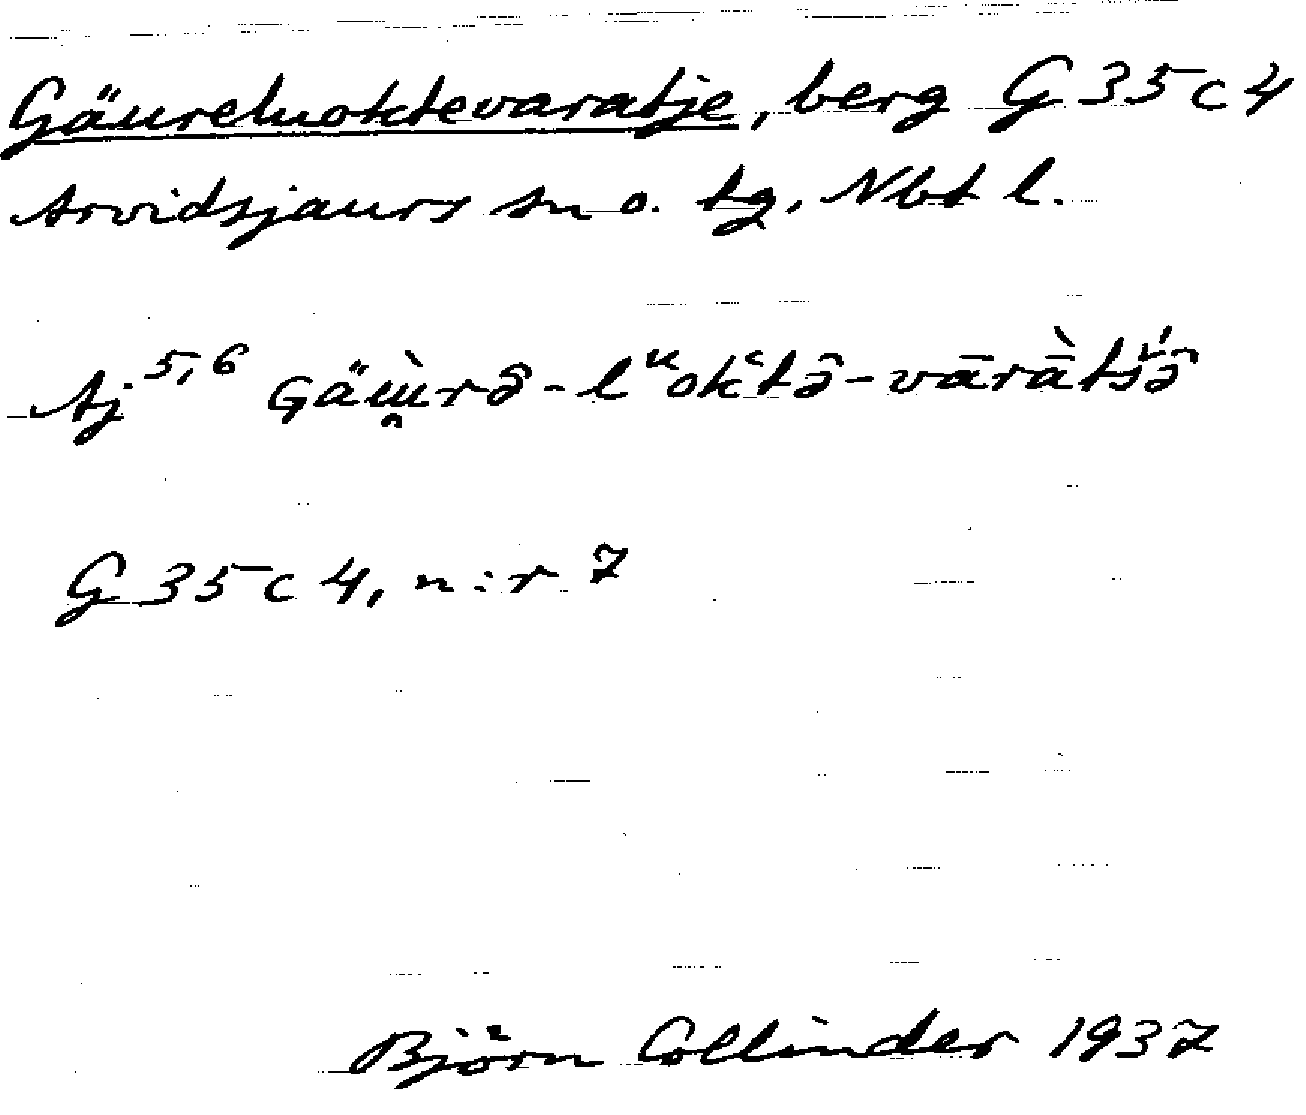 Gäureluoktevaratje, berg G 35 c 4
Arvidsjaurs sn o. tg, Nbt l.
Aj 5,6 Gäù̯rə̑-lᵘokʿtə̑-vārā̀tśə̑
G 35 c 4, n:r 7
Björn Collinder 1937